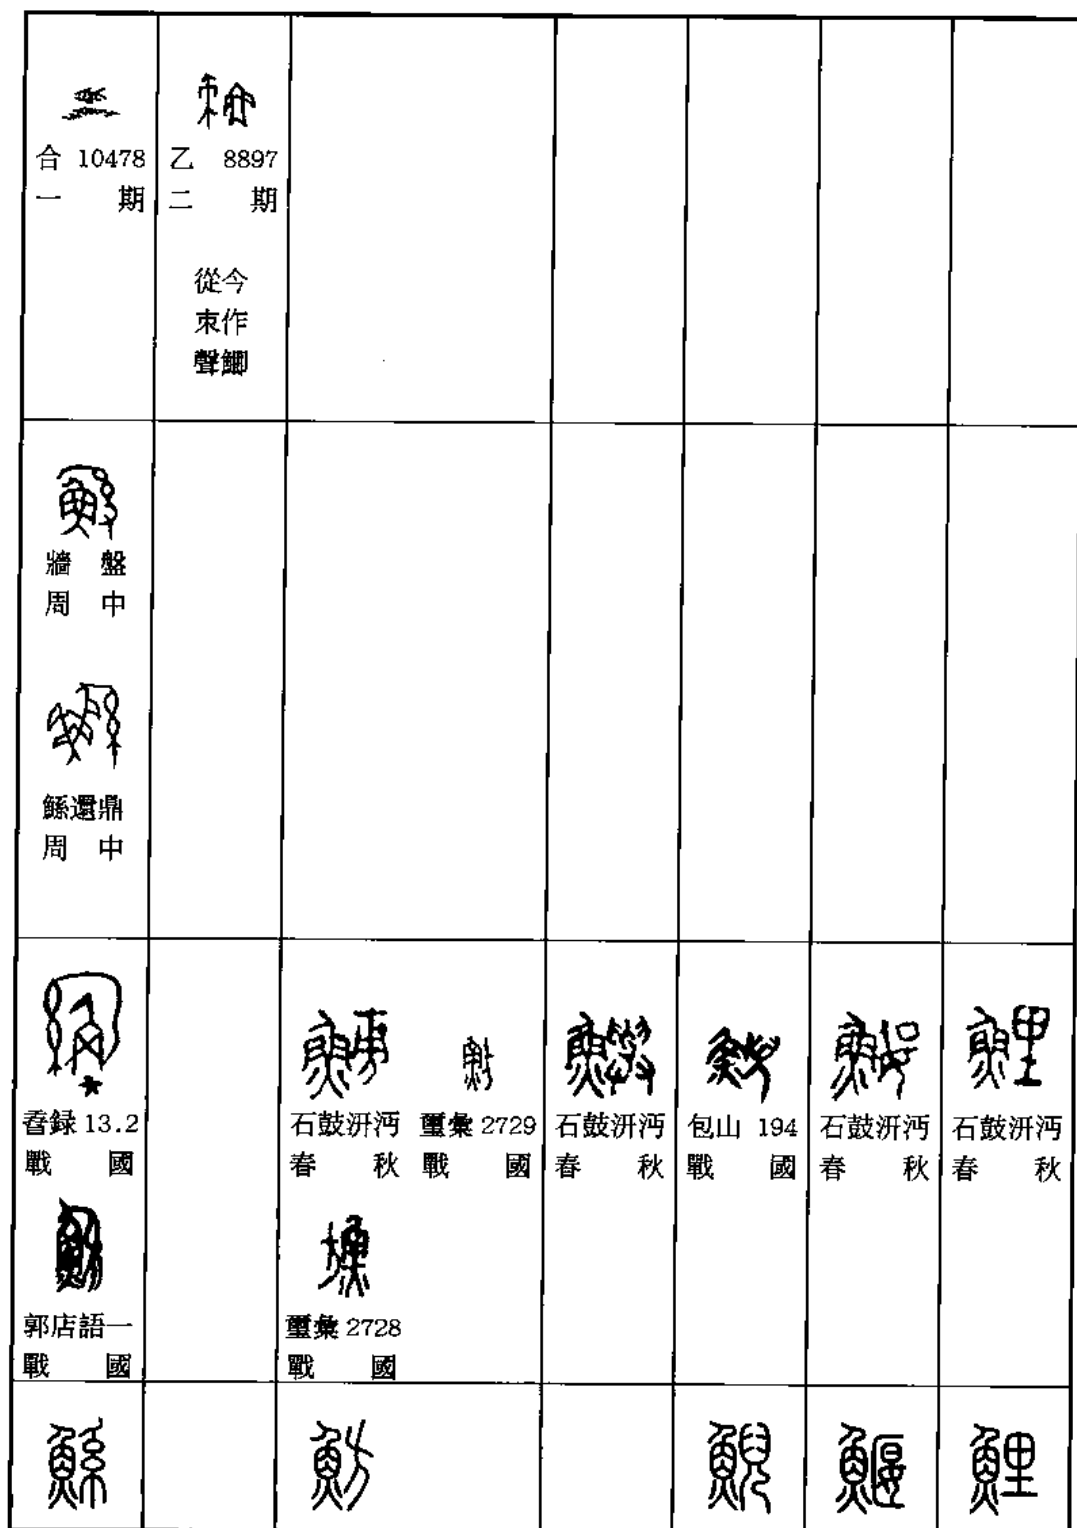 合 10478
一 期
乙 8897
二 期
從今
朿作
聲鯽
牆 盤
周 中
鯀還鼎
周 中
㫭録 13.2
戰 國
郭店語一
戰 國
石鼓汧沔
春 秋
璽彙 2729
戰 國
璽彙 2728
戰 國
石鼓汧沔
春 秋
包山 194
戰 國
石鼓汧沔
春 秋
石鼓汧沔
春 秋
鯀
魴
鯢
鰋
鯉